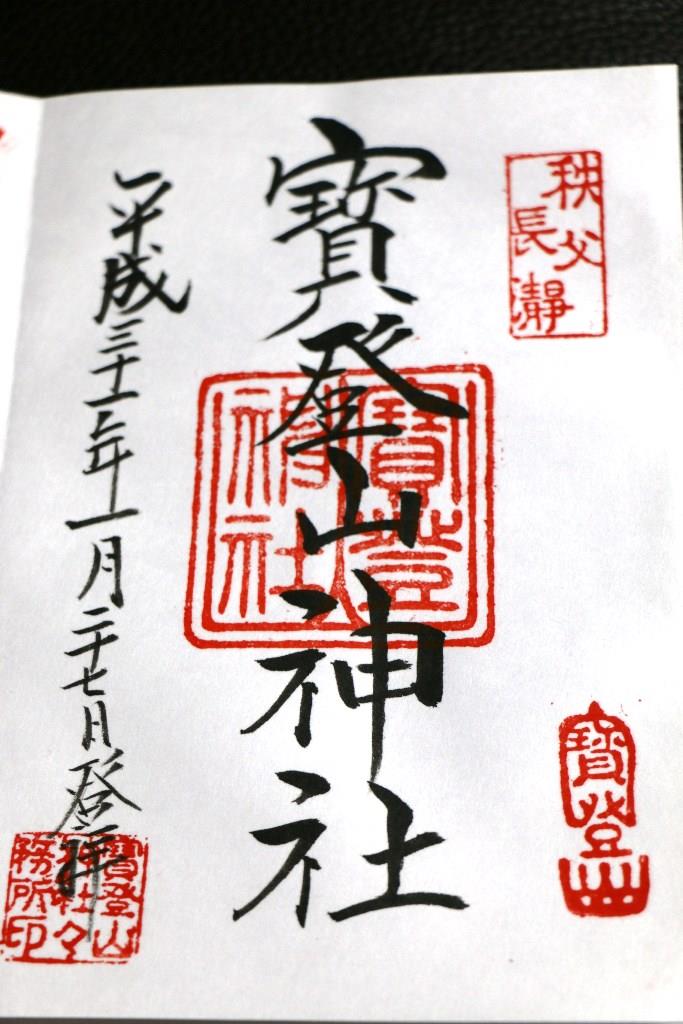 秩父
長瀞
寳登山神社
寳登
神社
寳登山
平成三十一年一月二十七日登拝
寳登山
神社々
務所印